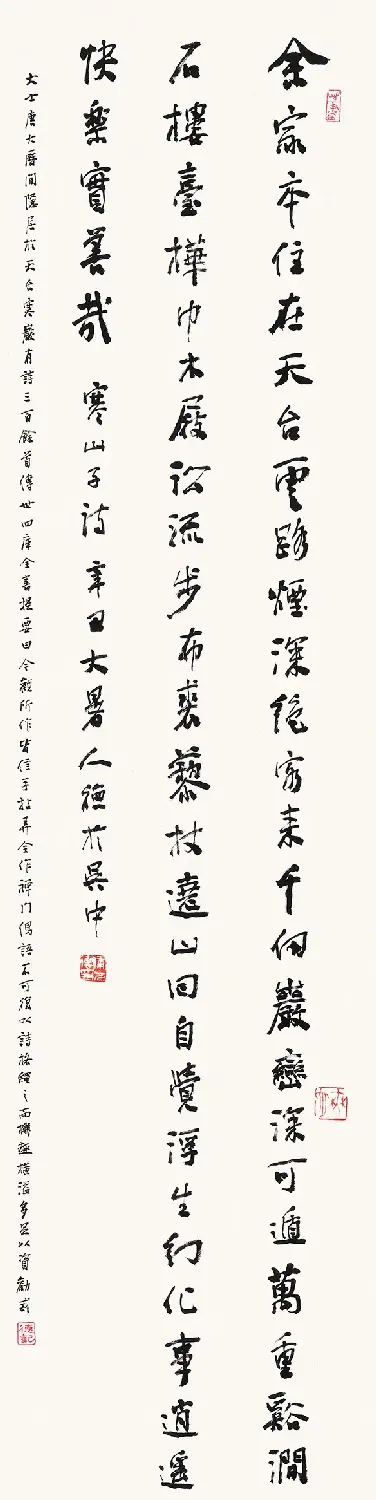 余家本住在天台雲路煙深絕客來千仞巖巒深可遁萬重谿澗
石樓臺樺巾木屐沿流步布裘藜杖遶山回自覺浮生幻化事逍遙
快樂實善哉 寒山子詩 辛丑大暑人德於吳中
大士唐大曆間隱居於天台寒巖有詩三百餘首傳世四庫全書提要曰今觀所作皆信手拈弄全作禪門偈語不可復以詩格繩之而機趣橫溢多足以資勸戒